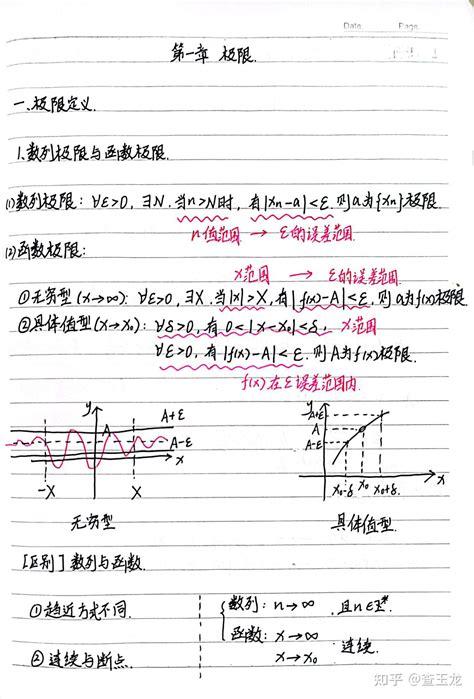 Date. Page.
第一章 极限.
一、极限定义.
1.数列极限与函数极限.
(1)数列极限：∀ε>0，∃N.当n>N时，有|xn-a|<ε.则a为{xn}极限.
n值范围 → ε的误差范围.
(2)函数极限：
x范围 → ε的误差范围.
①无穷型(x→∞)：∀ε>0，∃X.当|x|>X，有|f(x)-A|<ε.则a为f(x)极限.
②具体值型(x→x₀)：∀δ>0，有 0<|x-x₀|<δ， x范围
∀ε>0，有|f(x)-A|<ε.则A为f(x)极限.
f(x)在ε误差范围内.
y A A+ε A-ε x -X X
y A+ε A A-ε x₀-δ x₀ x₀+δ x
无穷型 具体值型.
[区别]数列与函数.
①趋近方式不同. 数列：n→∞ 且n∈Z*.
函数：x→∞ 连续.
②连续与断点. x→x₀
知乎 @查王龙